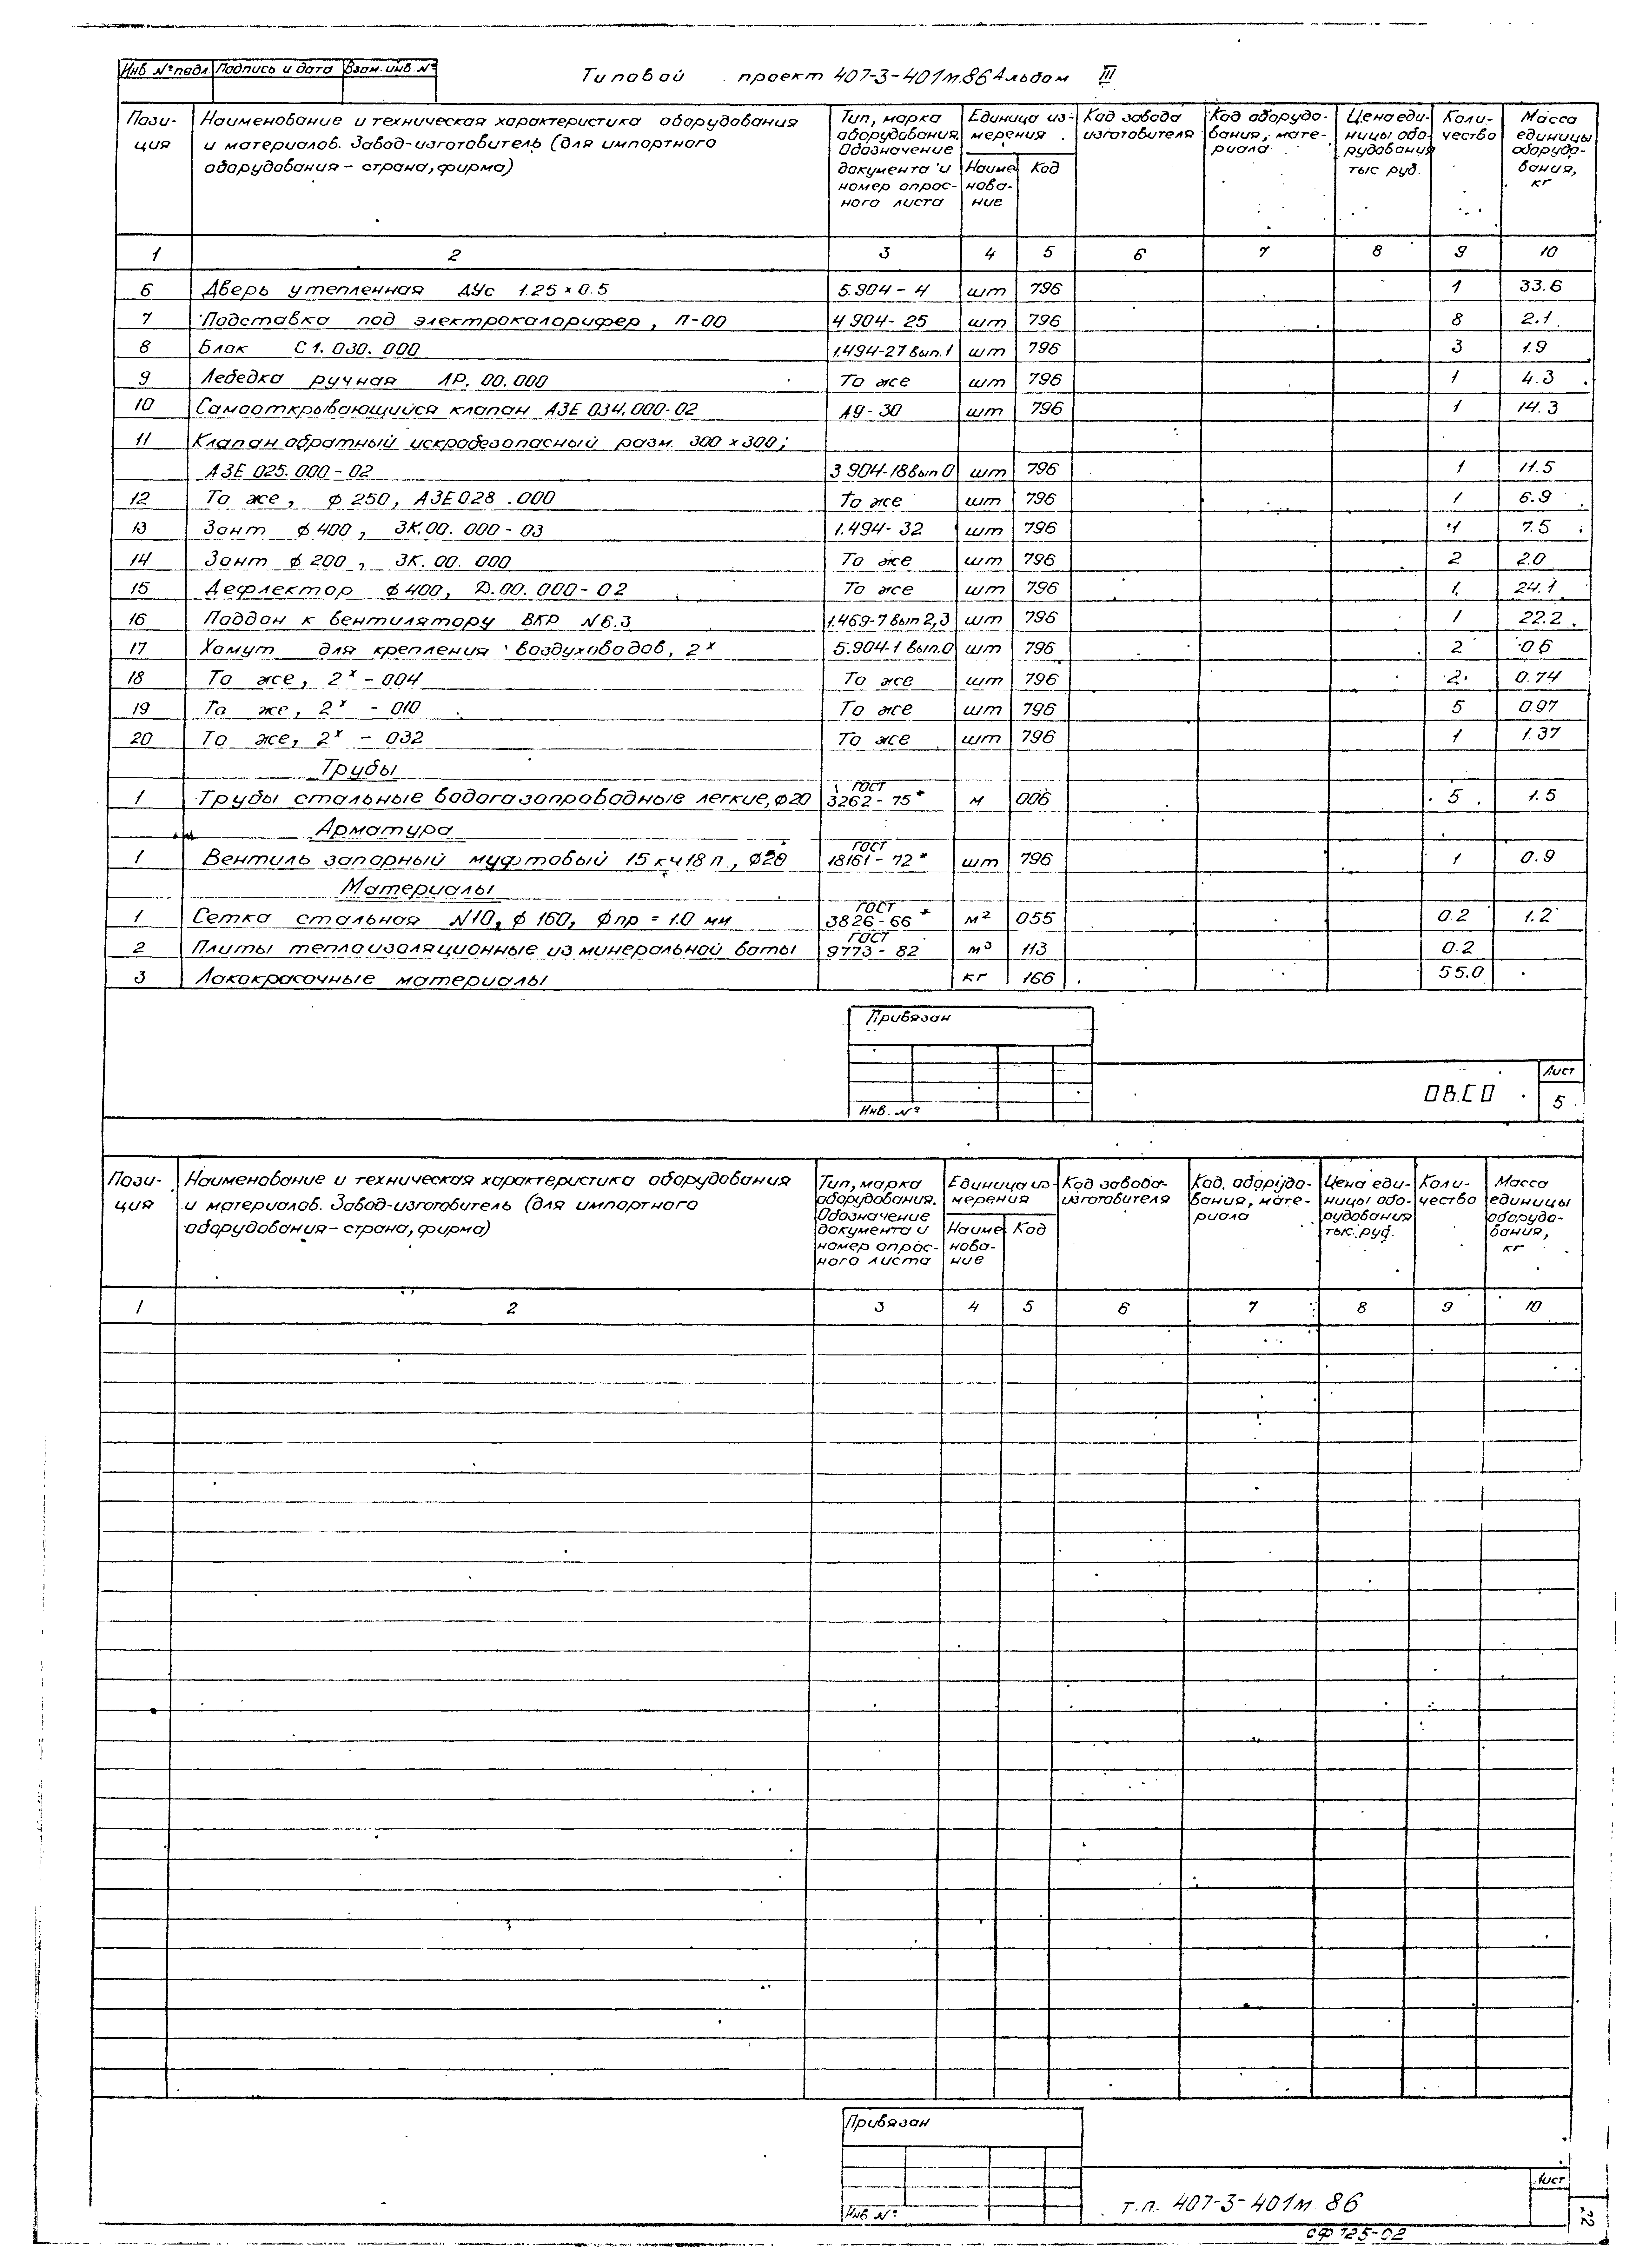 Инв № подл Подпись и дата Взам. инв. №
Типовой проект 407-3-401м.86 Альбом III
Пози-
ция
Наименование и техническая характеристика оборудования
и материалов. Завод-изготовитель (для импортного
оборудования - страна, фирма)
Тип, марка
оборудования
Обозначение
документа и
номер опрос-
ного листа
Единица из-
мерения
Наиме
нова-
ние
Код
Код завода
изготовителя
Код оборудо-
вания, мате-
риала
Цена еди-
ницы обо-
рудования
тыс руб.
Коли-
чество
Масса
единицы
оборудо-
вания,
кг
1 2 3 4 5 6 7 8 9 10
6 Дверь утепленная ДУс 1.25 × 0.5 5.904 - 4 шт 796 1 33.6
7 Подставка под электрокалорифер, П-00 4 904- 25 шт 796 8 2.1
8 Блок С 1. 030. 000 1.494-27 вып. 1 шт 796 3 1.9
9 Лебедка ручная ЛР. 00. 000 То же шт 796 1 4.3
10 Самооткрывающийся клапан АЗЕ 034.000-02 А9- 30 шт 796 1 14.3
11 Клапан обратный искробезопасный разм. 300 × 300;
АЗЕ 025. 000 - 02 3 904-18 вып 0 шт 796 1 11.5
12 То же, ϕ 250, АЗЕ 028 .000 То же шт 796 1 6.9
13 Зонт ϕ 400, ЗК.00. 000 - 03 1.494- 32 шт 796 1 7.5
14 Зонт ϕ 200, ЗК. 00. 000 То же шт 796 2 2.0
15 Дефлектор ϕ 400, Д.00. 000- 02 То же шт 796 1 24.1
16 Поддон к вентилятору ВКР N 6.3 1.469-7 вып 2,3 шт 796 1 22.2
17 Хомут для крепления воздуховодов, 2ˣ 5.904-1 вып.0 шт 796 2 0 6
18 То же, 2ˣ - 004 То же шт 796 2 0.74
19 То же, 2ˣ - 010 То же шт 796 5 0.97
20 То же, 2ˣ - 032 То же шт 796 1 1.37
Трубы
1 Трубы стальные водогазопроводные легкие, ϕ 20 ГОСТ 3262 - 75* м 006 5 1.5
Арматура
1 Вентиль запорный муфтовый 15 кч 18 п., ϕ20 ГОСТ 18161 - 72* шт 796 1 0.9
Материалы
1 Сетка стальная N10, ϕ 160, ϕпр = 1.0 мм ГОСТ 3826 - 66* м² 055 0.2 1.2
2 Плиты теплоизоляционные из минеральной ваты ГОСТ 9773 - 82 м³ 113 0.2
3 Лакокрасочные материалы кг 166 55.0
Привязан
Инв. №
ОВ.СО
Лист
5
Пози-
ция
Наименование и техническая характеристика оборудования
и материалов. Завод-изготовитель (для импортного
оборудования - страна, фирма)
Тип, марка
оборудования.
Обозначение
документа и
номер опрос-
ного листа
Единица из-
мерения
Наиме
нова-
ние
Код
Код завода-
изготовителя
Код оборудо-
вания, мате-
риала
Цена еди-
ницы обо-
рудования
тыс. руб.
Коли-
чество
Масса
единицы
оборудо-
вания,
кг
1 2 3 4 5 6 7 8 9 10
Привязан
Инв №
т.п. 407-3-401м 86
Лист
22
сф 125-02